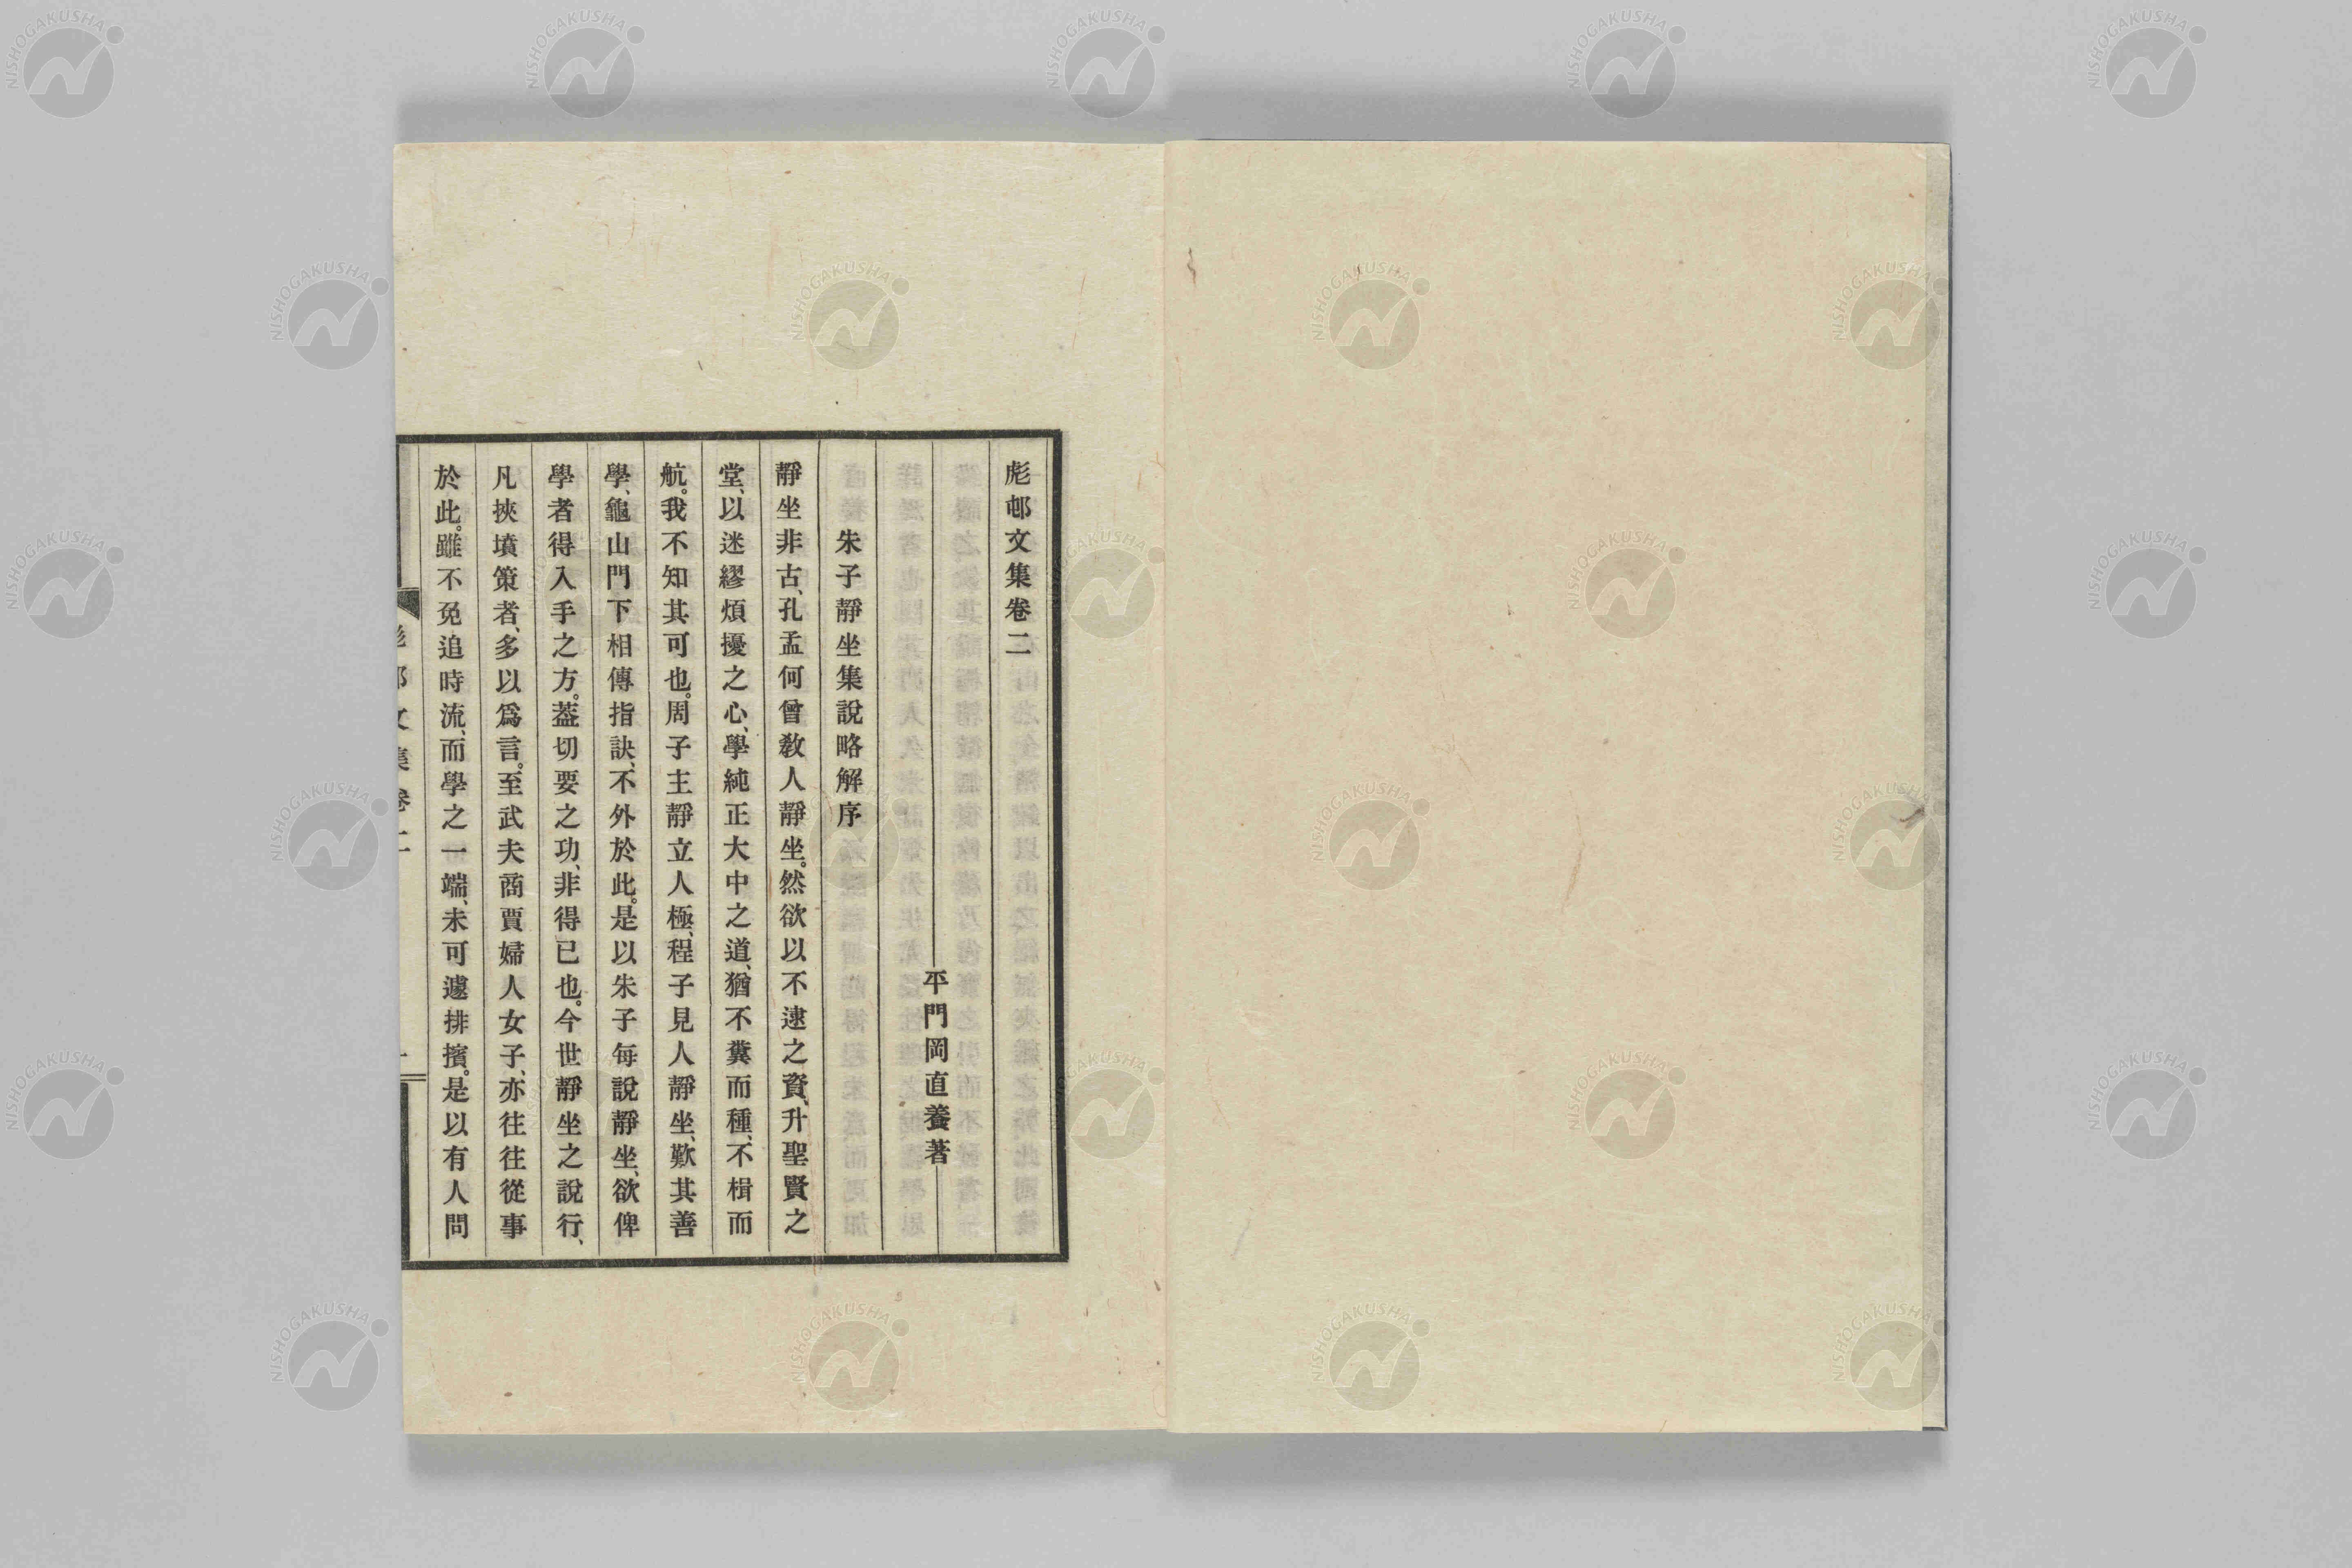 彪邨文集卷二
平門岡直養著
朱子靜坐集說略解序
靜坐非古、孔孟何曾敎人靜坐。然欲以不逮之資、升聖賢之
堂、以迷繆煩擾之心、學純正大中之道、猶不糞而種、不楫而
航。我不知其可也。周子主靜立人極、程子見人靜坐、歎其善
學、龜山門下相傳指訣、不外於此。是以朱子每說靜坐、欲俾
學者得入手之方。葢切要之功、非得已也。今世靜坐之說行、
凡挾墳策者、多以爲言。至武夫商賈婦人女子、亦往往從事
於此。雖不免追時流、而學之一端、未可遽排擯。是以有人問
彪邨文集卷二
NISHOGAKUSHA